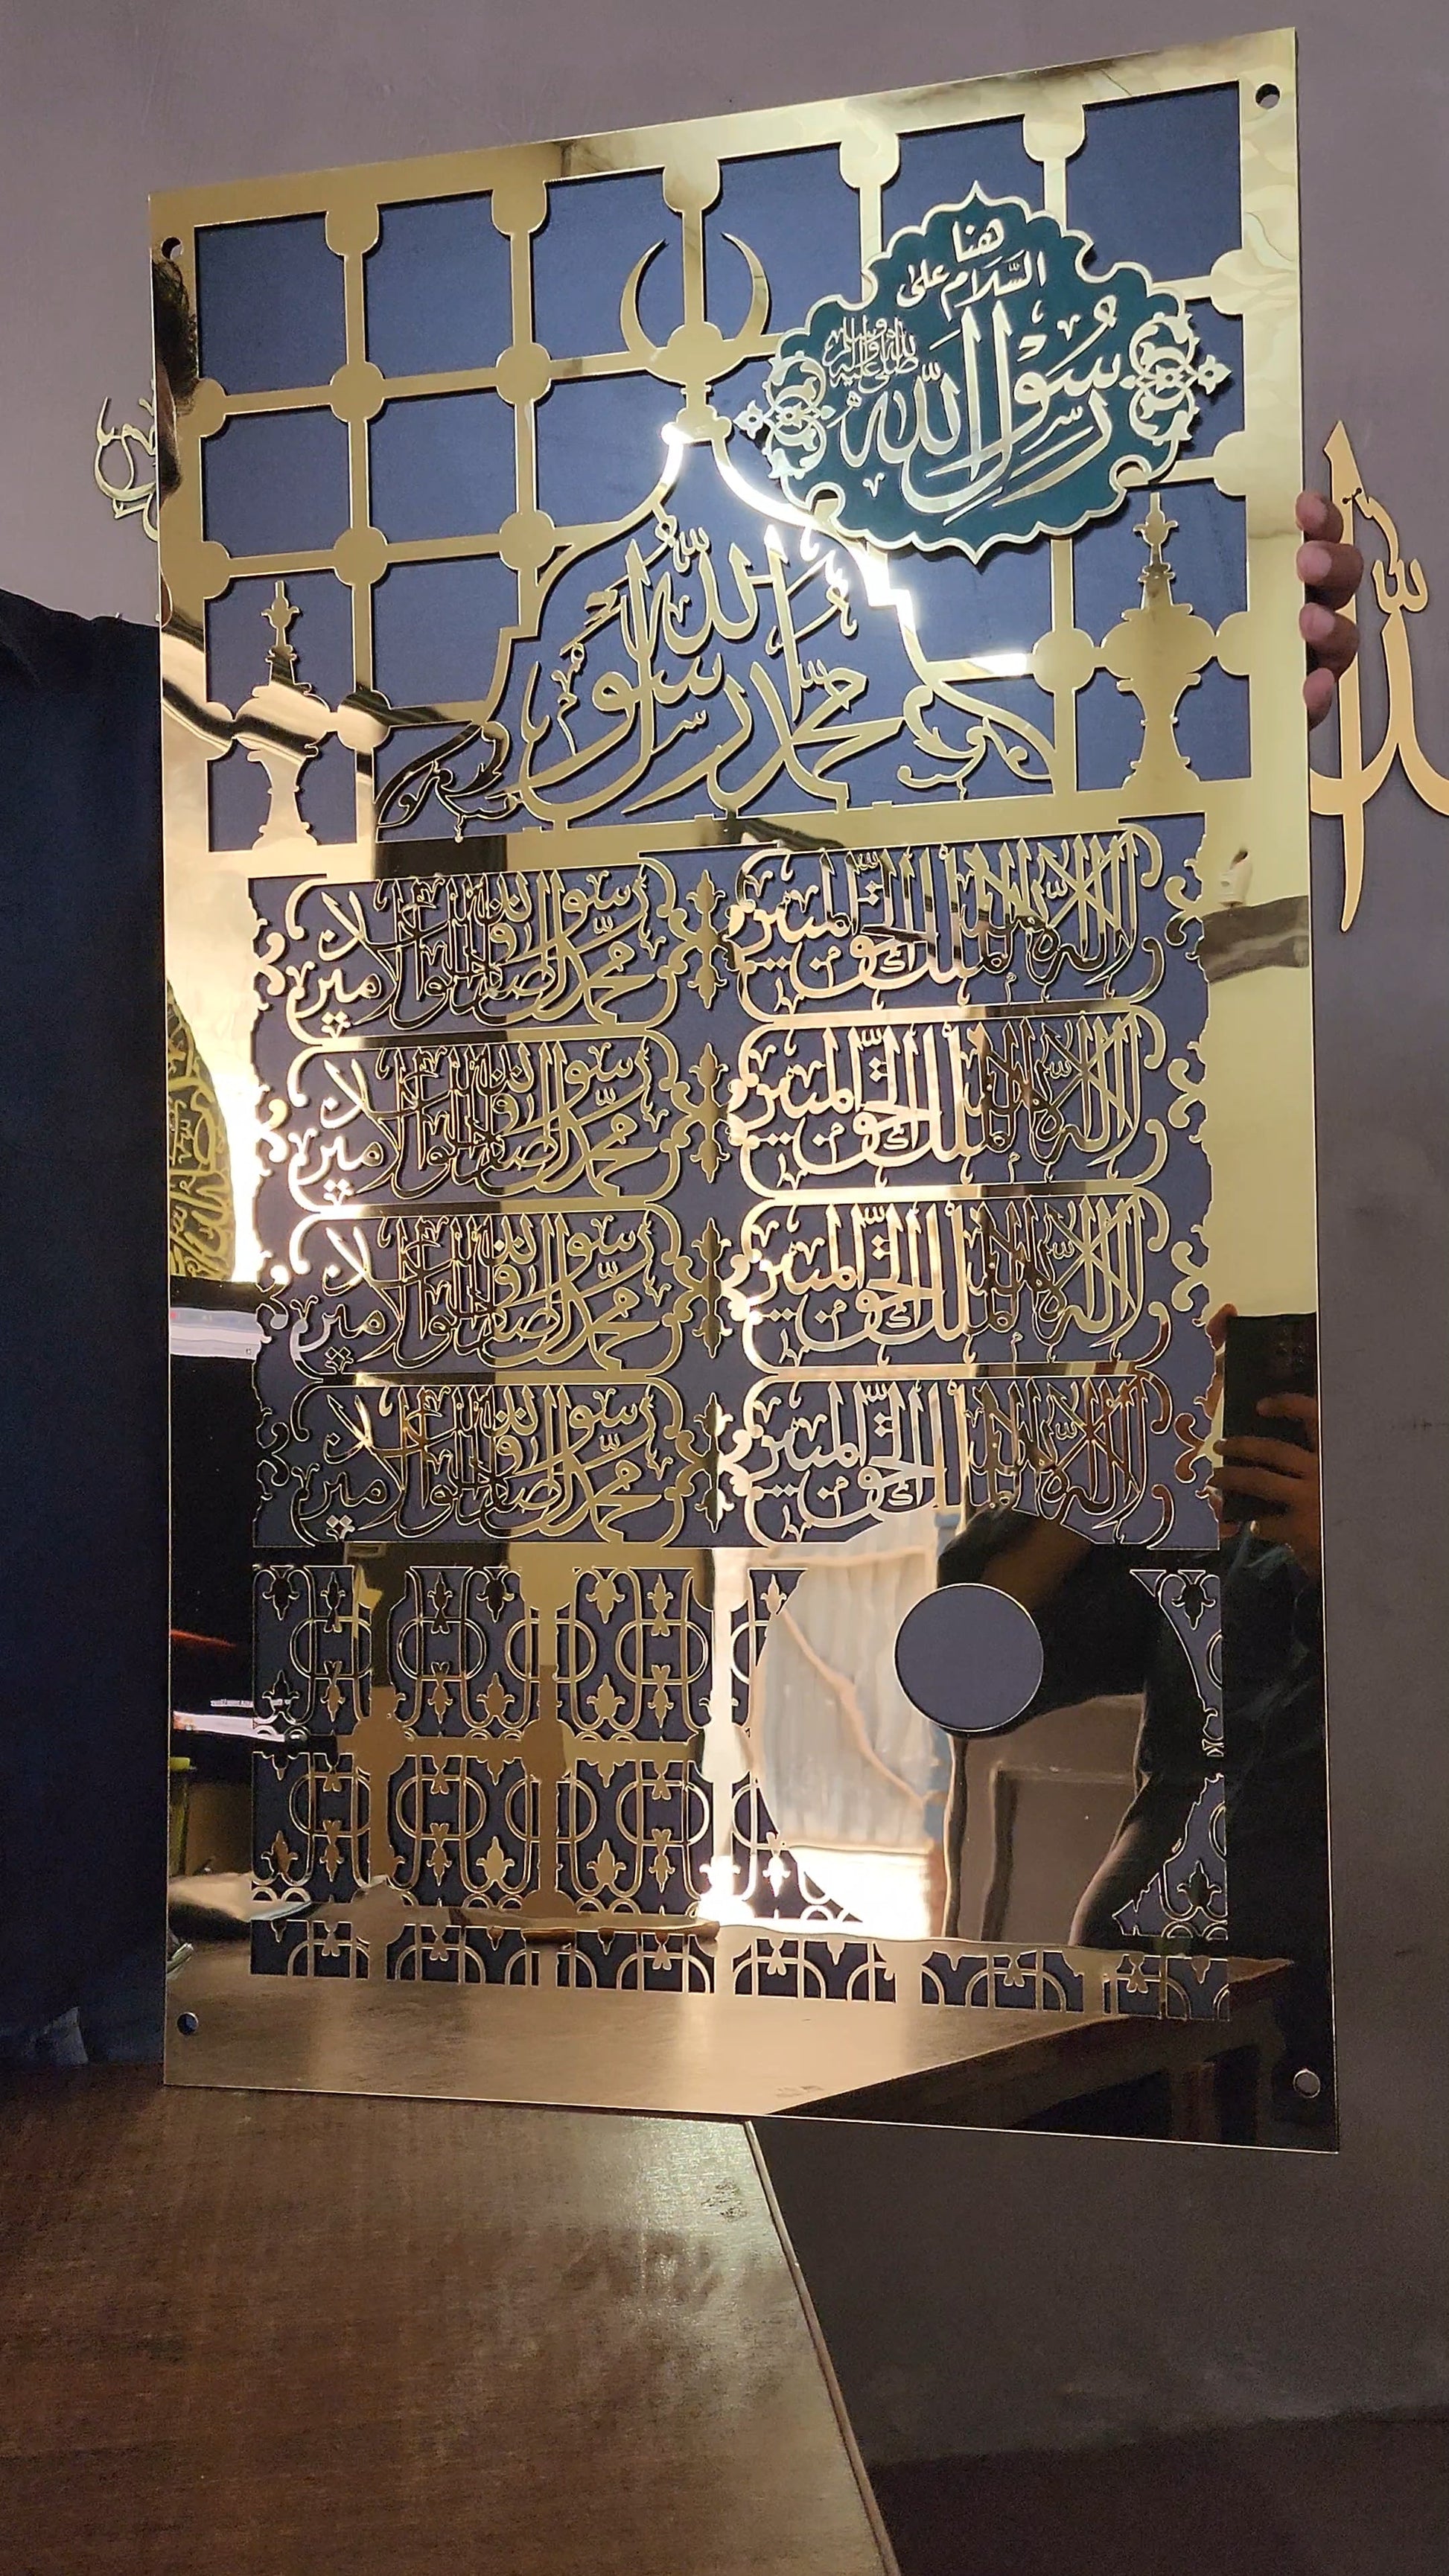 هنا
السَّلَام على
رَسُوْلِ اللّٰه
صلى الله عليه وآله وسلم
محمد رسول الله
لا إله إلا الله الملك الحق المبين
محمد رسول الله الصادق الوعد الأمين
لا إله إلا الله الملك الحق المبين
محمد رسول الله الصادق الوعد الأمين
لا إله إلا الله الملك الحق المبين
محمد رسول الله الصادق الوعد الأمين
لا إله إلا الله الملك الحق المبين
محمد رسول الله الصادق الوعد الأمين